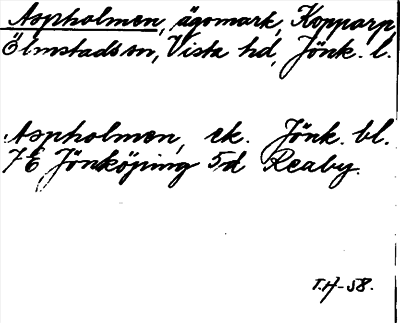 Aspholmen, ägomark, Kopparp,
Ölmstads sn, Vista hd, Jönk. l.
Aspholmen, ek. Jönk. bl.
7E Jönköping 5d Reaby.
T.H-58.